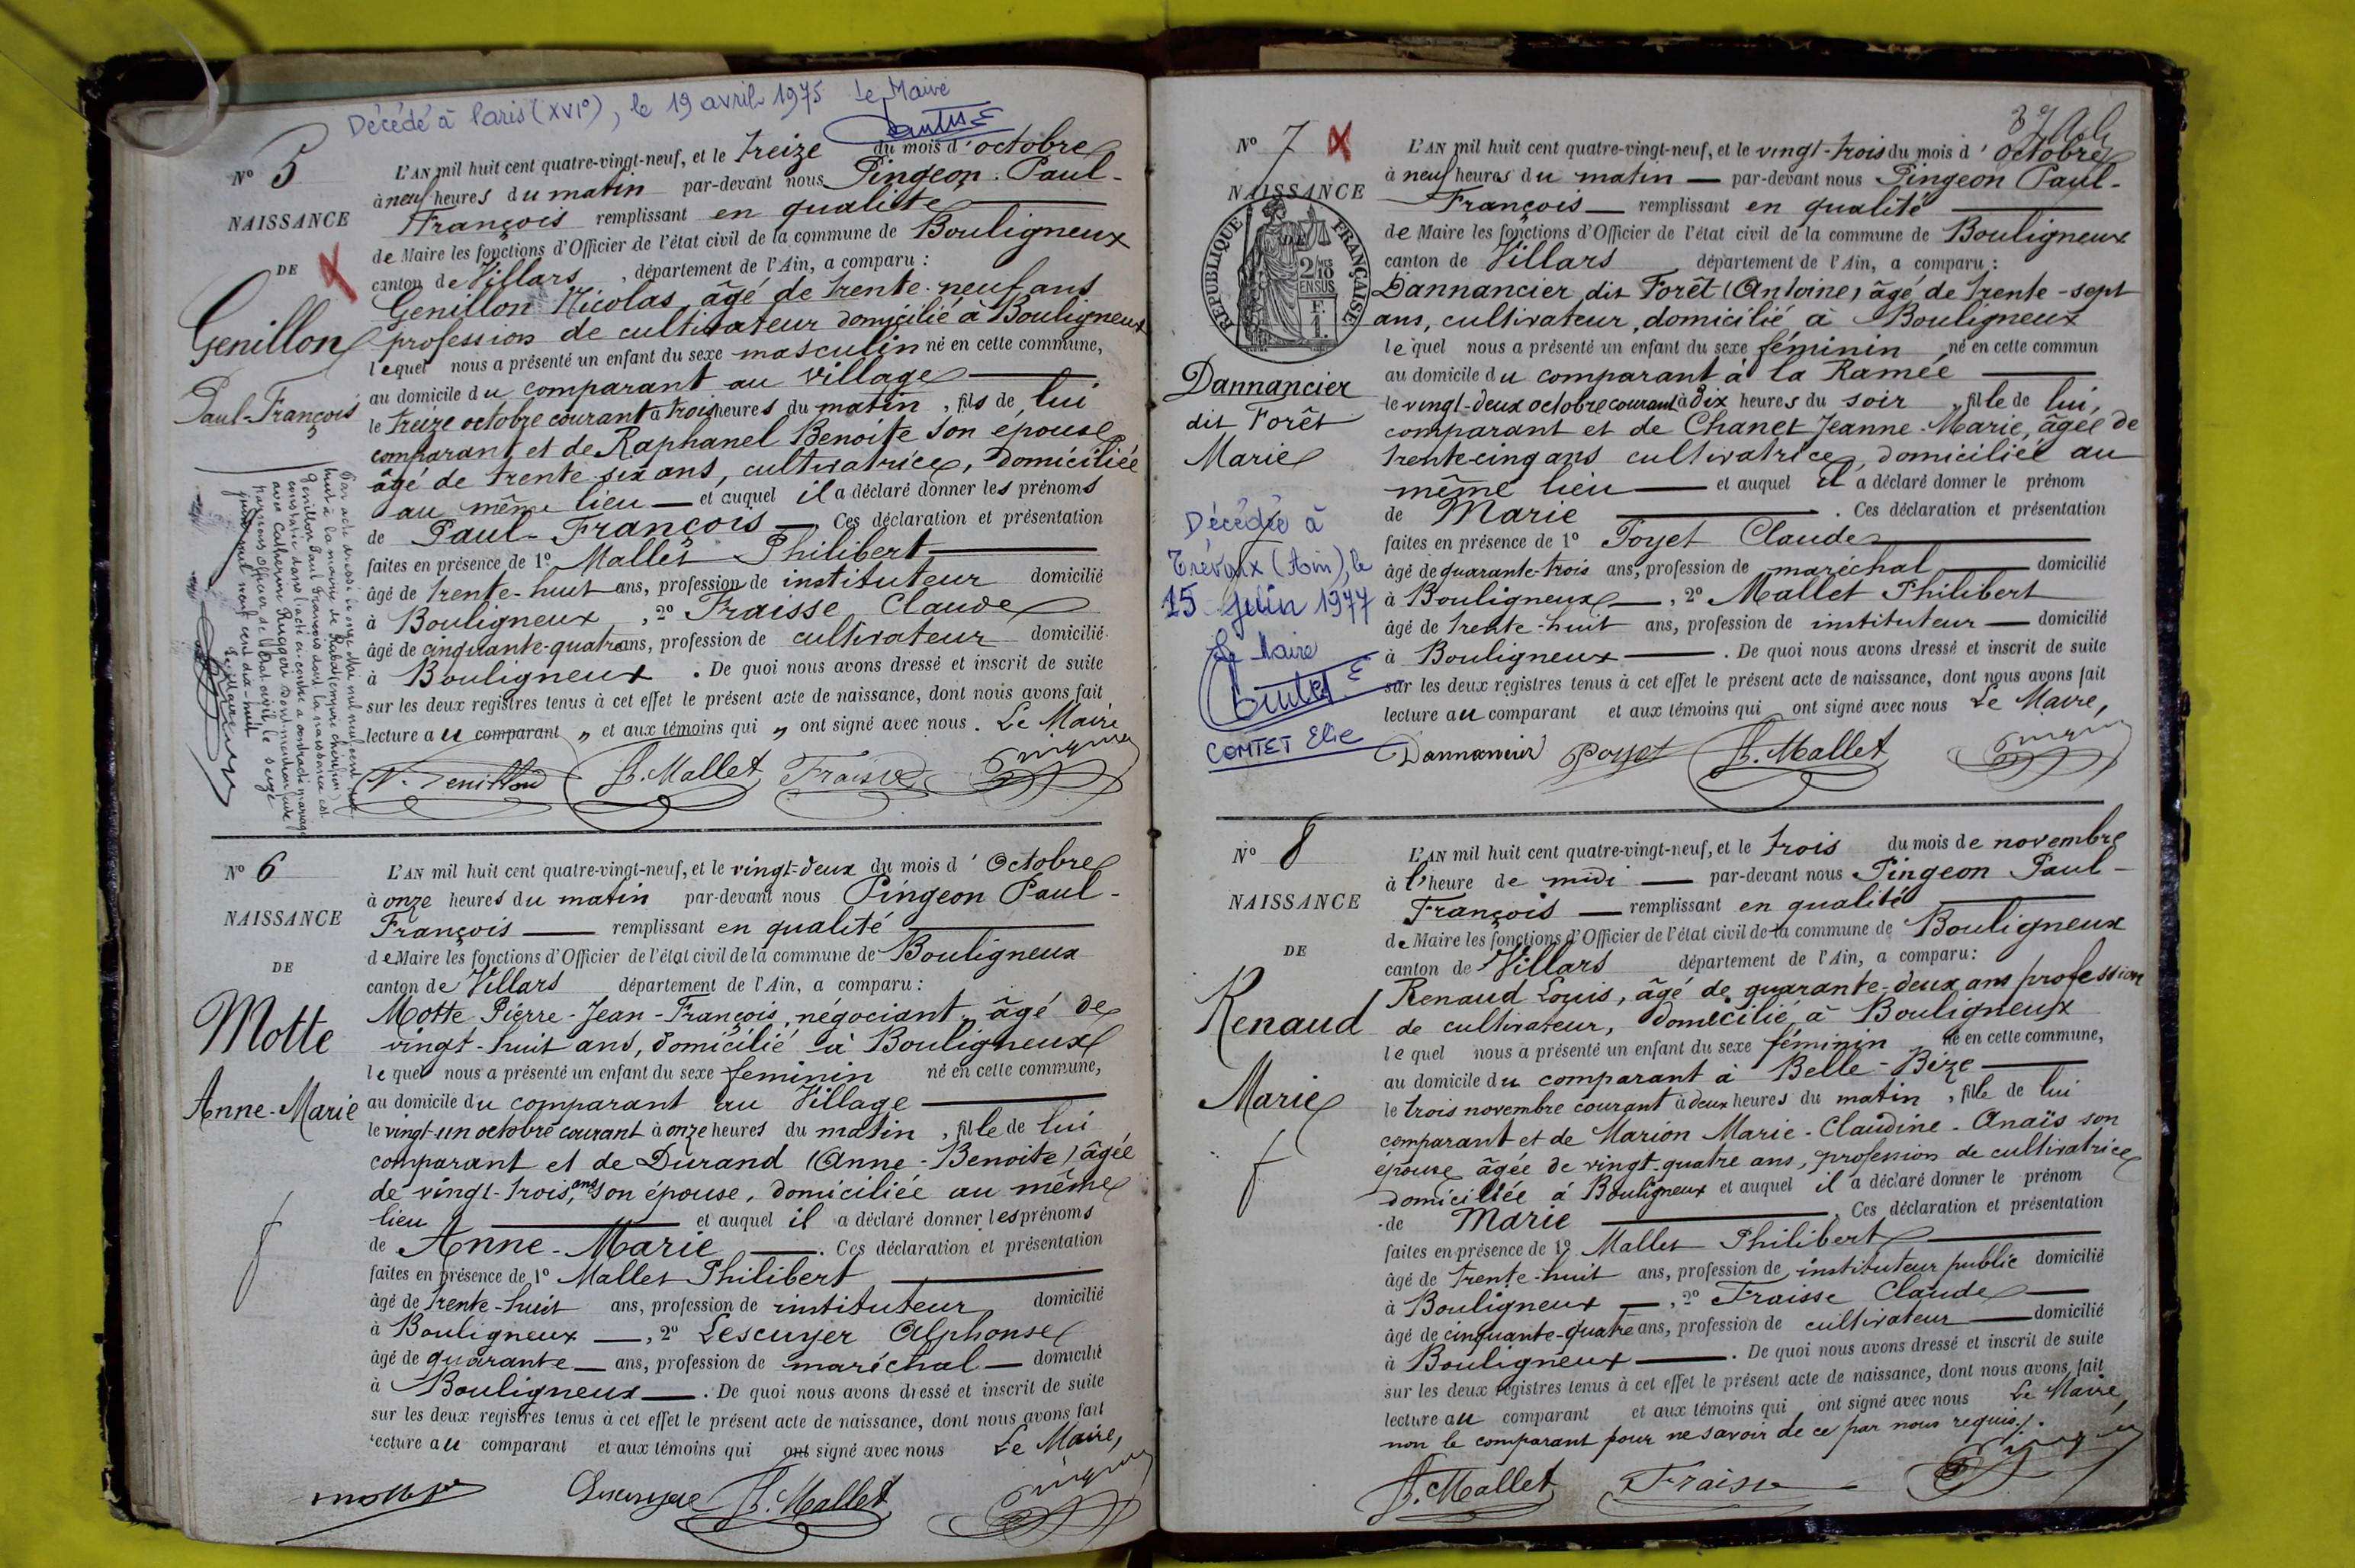 Décédé à Paris (XVIe), le 19 avril 1975 Le Maire
No 5
NAISSANCE
DE
Genillon
Paul-François
L'AN mil huit cent quatre-vingt-neuf, et le treize du mois d'octobre
à neuf heures du matin par-devant nous Pingeon Paul-
François remplissant en qualité
de Maire les fonctions d'Officier de l'état civil de la commune de Bouligneux
canton de Villars, département de l'Ain, a comparu :
Genillon Nicolas âgé de trente-neuf ans
profession de cultivateur domicilié à Bouligneux
lequel nous a présenté un enfant du sexe masculin né en cette commune,
au domicile du comparant au village
le treize octobre courant à trois heures du matin, fils de lui
comparant et de Raphanel Benoite son épouse
âgé de trente six ans, cultivatrice, domiciliée
au même lieu et auquel il a déclaré donner les prénoms
de Paul-François. Ces déclaration et présentation
faites en présence de 1o Mallet Philibert
âgé de trente-huit ans, profession de instituteur domicilié
à Bouligneux, 2o Fraisse Claude
âgé de cinquante-quatre ans, profession de cultivateur domicilié
à Bouligneux. De quoi nous avons dressé et inscrit de suite
sur les deux registres tenus à cet effet le présent acte de naissance, dont nous avons fait
lecture au comparant „ et aux témoins qui „ ont signé avec nous. Le Maire
N. Genillon Ph. Mallet Fraisse Pingeon
Par acte dressé le onze Mai mil neuf cent
huit à la mairie de Rabat (empire chérifien)
Genillon Paul François dont la naissance est
constatée dans l'acte ci-contre a contracté mariage
avec Catherine Ruggeri dont mention faite
par nous officier de l'état civil, le seize
juin mil neuf cent dix-huit
Le Maire
No 6
NAISSANCE
DE
Motte
Anne-Marie
L'AN mil huit cent quatre-vingt-neuf, et le vingt-deux du mois d'Octobre
à onze heures du matin par-devant nous Pingeon Paul-
François remplissant en qualité
de Maire les fonctions d'Officier de l'état civil de la commune de Bouligneux
canton de Villars département de l'Ain, a comparu :
Motte Pierre-Jean-François, négociant, âgé de
vingt-huit ans, domicilié à Bouligneux
lequel nous a présenté un enfant du sexe feminin né en cette commune,
au domicile du comparant au Village
le vingt-un octobre courant à onze heures du matin, fille de lui
comparant et de Durand (Anne-Benoite) âgée
de vingt-trois, ans son épouse, domiciliée au même
lieu et auquel il a déclaré donner les prénoms
de Anne-Marie. Ces déclaration et présentation
faites en présence de 1o Mallet Philibert
âgé de trente-huit ans, profession de instituteur domicilié
à Bouligneux, 2o Lescuyer Alphonse
âgé de quarante ans, profession de maréchal domicilié
à Bouligneux. De quoi nous avons dressé et inscrit de suite
sur les deux registres tenus à cet effet le présent acte de naissance, dont nous avons fait
lecture au comparant et aux témoins qui ont signé avec nous Le Maire,
Motte Lescuyer Ph. Mallet Pingeon
No 7
NAISSANCE
DE
REPUBLIQUE FRANÇAISE
2/10
EN SUS
F.
1.
Dannancier
dit Forêt
Marie
Décédée à
Trévoux (Ain), le
15 Juin 1977
Le Maire
COMTET Elie
L'AN mil huit cent quatre-vingt-neuf, et le vingt-trois du mois d'octobre
à neuf heures du matin par-devant nous Pingeon Paul-
François remplissant en qualité
de Maire les fonctions d'Officier de l'état civil de la commune de Bouligneux
canton de Villars département de l'Ain, a comparu :
Dannancier dit Forêt (Antoine) âgé de trente-sept
ans, cultivateur, domicilié à Bouligneux
lequel nous a présenté un enfant du sexe féminin né en cette commun
au domicile du comparant à la Ramée
le vingt-deux octobre courant à dix heures du soir, fille de lui,
comparant et de Chanel Jeanne-Marie, âgée de
trente-cinq ans cultivatrice, domiciliée au
même lieu et auquel il a déclaré donner le prénom
de Marie. Ces déclaration et présentation
faites en présence de 1o Poyet Claude
âgé de quarante-trois ans, profession de maréchal domicilié
à Bouligneux, 2o Mallet Philibert
âgé de trente-huit ans, profession de instituteur domicilié
à Bouligneux. De quoi nous avons dressé et inscrit de suite
sur les deux registres tenus à cet effet le présent acte de naissance, dont nous avons fait
lecture au comparant et aux témoins qui ont signé avec nous Le Maire,
Dannancier Poyet Ph. Mallet Pingeon
No 8
NAISSANCE
DE
Renaud
Marie
L'AN mil huit cent quatre-vingt-neuf, et le trois du mois de novembre
à l'heure de midi par-devant nous Pingeon Paul-
François remplissant en qualité
de Maire les fonctions d'Officier de l'état civil de la commune de Bouligneux
canton de Villars département de l'Ain, a comparu :
Renaud Louis, âgé de quarante-deux ans profession
de cultivateur, domicilié à Bouligneux
lequel nous a présenté un enfant du sexe féminin né en cette commune,
au domicile du comparant à Belle-Bize
le trois novembre courant à deux heures du matin, fille de lui
comparant et de Marion Marie-Claudine-Anaïs son
épouse âgée de vingt-quatre ans, profession de cultivatrice
domiciliée à Bouligneux et auquel il a déclaré donner le prénom
de Marie. Ces déclaration et présentation
faites en présence de 1o Mallet Philibert
âgé de trente-huit ans, profession de instituteur public domicilié
à Bouligneux, 2o Fraisse Claude
âgé de cinquante-quatre ans, profession de cultivateur domicilié
à Bouligneux. De quoi nous avons dressé et inscrit de suite
sur les deux registres tenus à cet effet le présent acte de naissance, dont nous avons fait
lecture au comparant et aux témoins qui ont signé avec nous Le Maire,
non le comparant pour ne savoir de ce par nous requis./.
Ph. Mallet Fraisse Pingeon